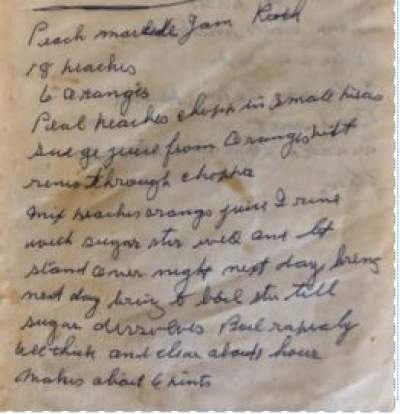 Peach marlede Jam Ruth
18 peaches
6 oranges
Peal peaches chopp in small pieces
juice from oranges put
rines through choppe
mix peaches orange juice & rine
with sugar stir well and let
stand over night next day breng
next day bring to boil stir till
sugar dissolves Boil rapialy
till thick and clear about hour
makes about 6 pints